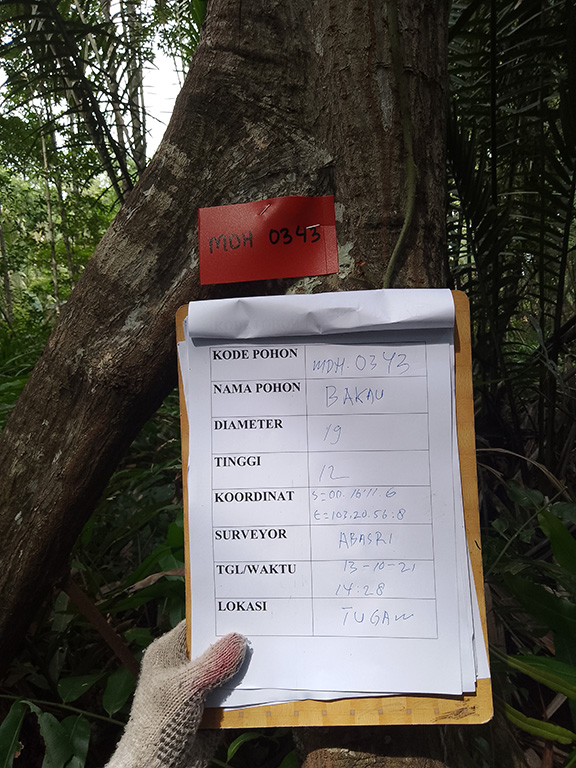 MDH 0343
KODE POHON MDH. 0343
NAMA POHON BAKAU
DIAMETER 19
TINGGI 12
KOORDINAT S=00.16'11.6
E=103.20.56:8
SURVEYOR ABASRI
TGL/WAKTU 13-10-21
14:28
LOKASI